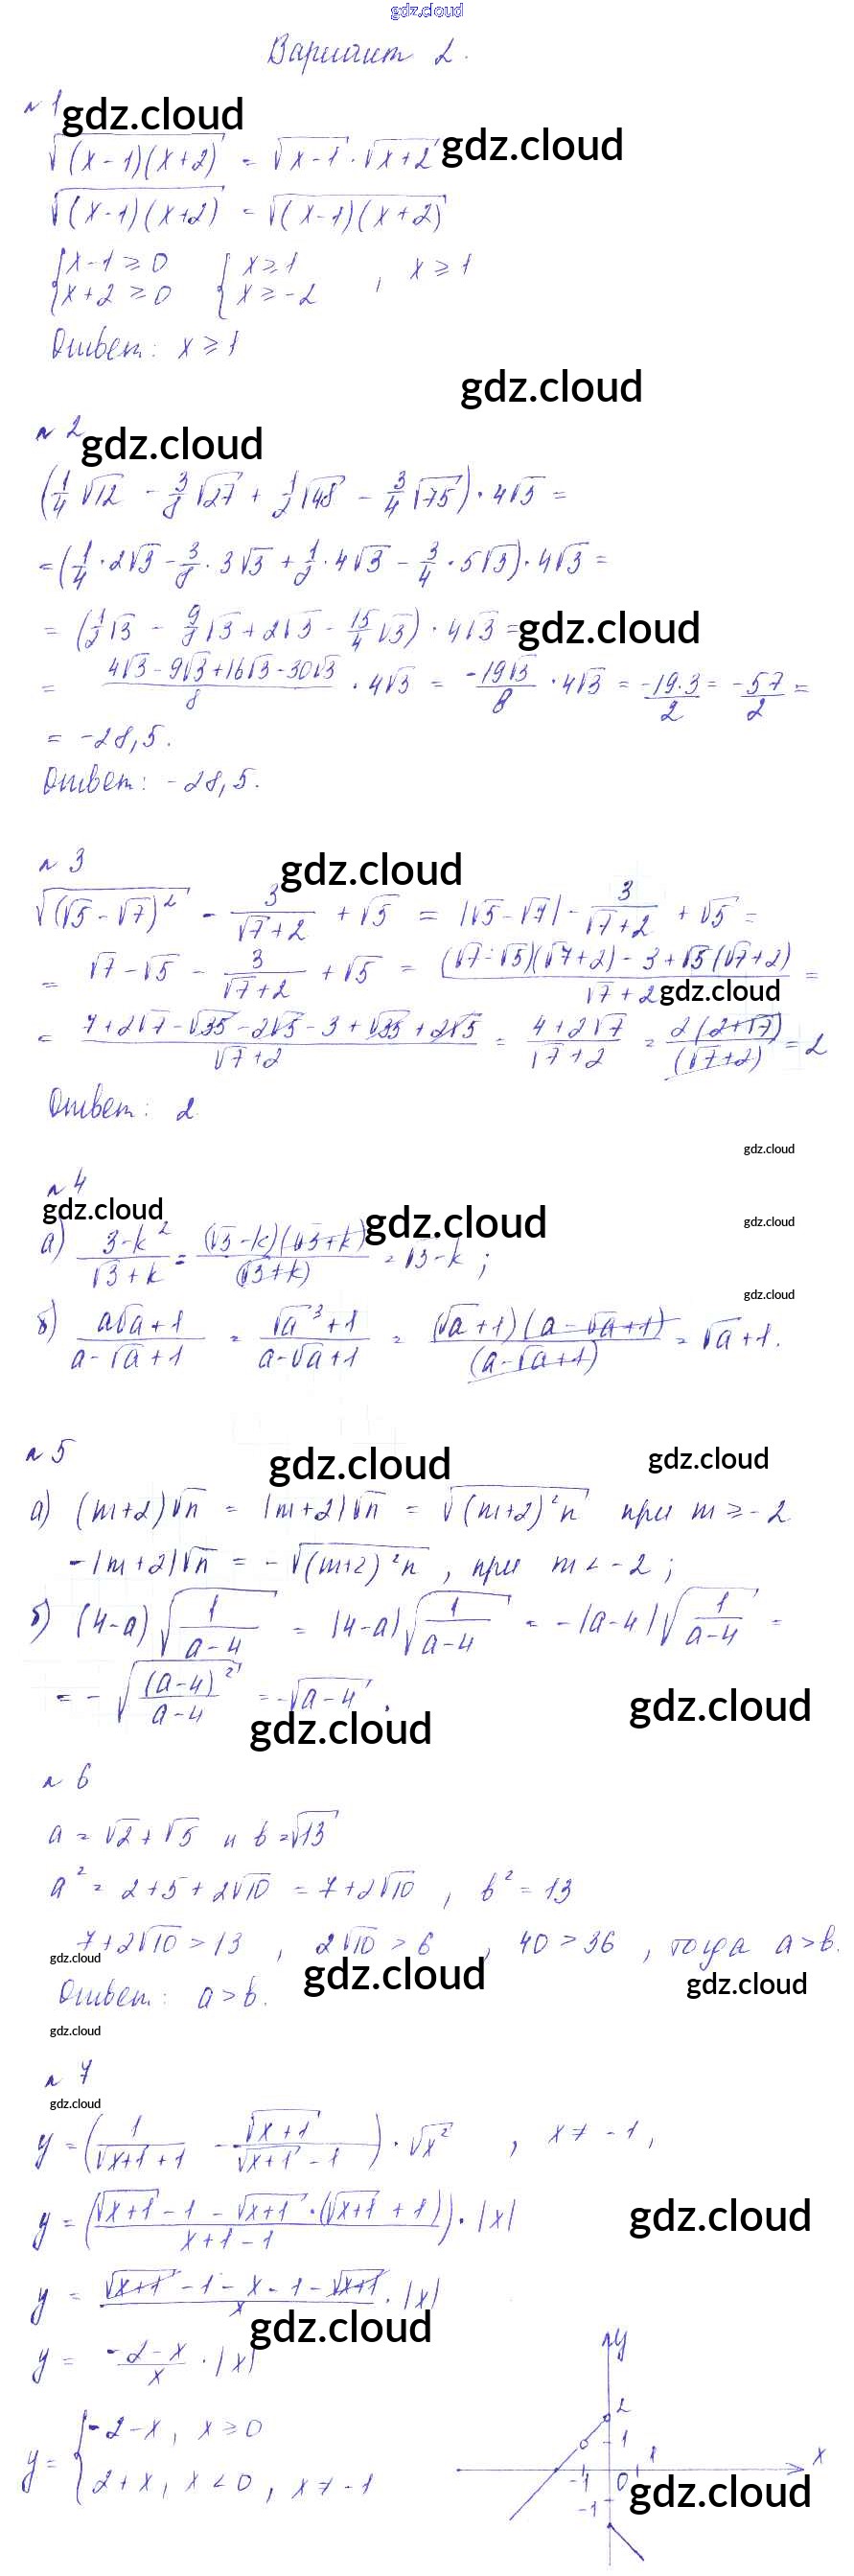 gdz.cloud
Вариант 2.
№1 gdz.cloud
√((x-1)(x+2)) = √(x-1) · √(x+2) gdz.cloud
√((x-1)(x+2)) = √((x-1)(x+2))
{x-1 ≥ 0 {x ≥ 1 , x ≥ 1
{x+2 ≥ 0 {x ≥ -2
Ответ: x ≥ 1
gdz.cloud
№2 gdz.cloud
(1/4 √12 - 3/8 √27 + 1/2 √48 - 3/4 √75) · 4√3 =
= (1/4 · 2√3 - 3/8 · 3√3 + 1/2 · 4√3 - 3/4 · 5√3) · 4√3 =
= (1/2 √3 - 9/8 √3 + 2√3 - 15/4 √3) · 4√3 = gdz.cloud
= (4√3 - 9√3 + 16√3 - 30√3)/8 · 4√3 = -19√3/8 · 4√3 = -19·3/2 = -57/2 =
= -28,5.
Ответ: -28,5.
№3 gdz.cloud
√((√5-√7)²) - 3/(√7+2) + √5 = |√5-√7| - 3/(√7+2) + √5 =
= √7-√5 - 3/(√7+2) + √5 = ((√7-√5)(√7+2) - 3 + √5(√7+2))/(√7+2) =
gdz.cloud
= (7+2√7-√35-2√5-3+√35+2√5)/(√7+2) = (4+2√7)/(√7+2) = 2(2+√7)/(√7+2) = 2
Ответ: 2
gdz.cloud
№4
gdz.cloud gdz.cloud gdz.cloud
а) (3-k²)/(√3+k) = (√3-k)(√3+k)/(√3+k) = √3-k ;
gdz.cloud
б) (a√a+1)/(a-√a+1) = (√a³+1)/(a-√a+1) = (√a+1)(a-√a+1)/(a-√a+1) = √a+1.
№5 gdz.cloud gdz.cloud
а) (m+2)√n = |m+2|√n = √((m+2)²n) при m ≥ -2
-|m+2|√n = -√((m+2)²n) , при m < -2 ;
б) (4-a)√(1/(a-4)) = |4-a|√(1/(a-4)) = -|a-4|√(1/(a-4)) =
= -√((a-4)²/(a-4)) = -√(a-4) . gdz.cloud
gdz.cloud
№6
a = √2+√5 и b = √13
a² = 2+5+2√10 = 7+2√10 , b² = 13
7+2√10 > 13 , 2√10 > 6 , 40 > 36 , тогда a > b.
gdz.cloud gdz.cloud gdz.cloud
Ответ: a > b.
gdz.cloud
№7
gdz.cloud
y = (1/(√(x+1)+1) - √(x+1)/(√(x+1)-1)) · √x² , x ≠ -1,
y = ((√(x+1)-1-√(x+1)·(√(x+1)+1))/(x+1-1)) · |x| gdz.cloud
y = (√(x+1)-1-x-1-√(x+1))/x · |x|
gdz.cloud
y = (-2-x)/x · |x|
y = {-2-x, x ≥ 0
{2+x, x < 0, x ≠ -1
y
2
1
1
x
-1
0
-1
gdz.cloud